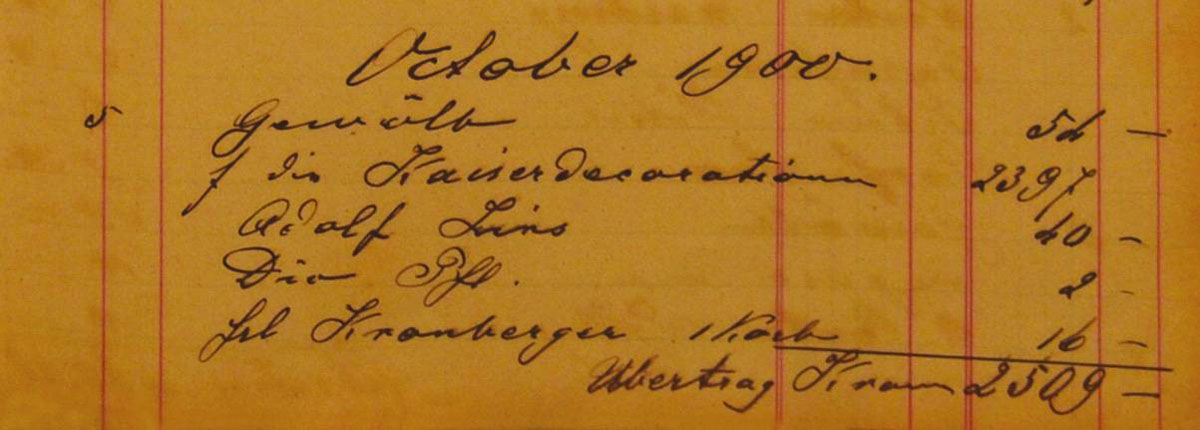 October 1900.
5 Gewölb 54 —
f die Kaiserdecorationen 2397
Adolf Lins 40 —
Div Pfl. 2 -
Frl Kronberger 1 Korb 16 —
Übertrag Kronen 2509 —